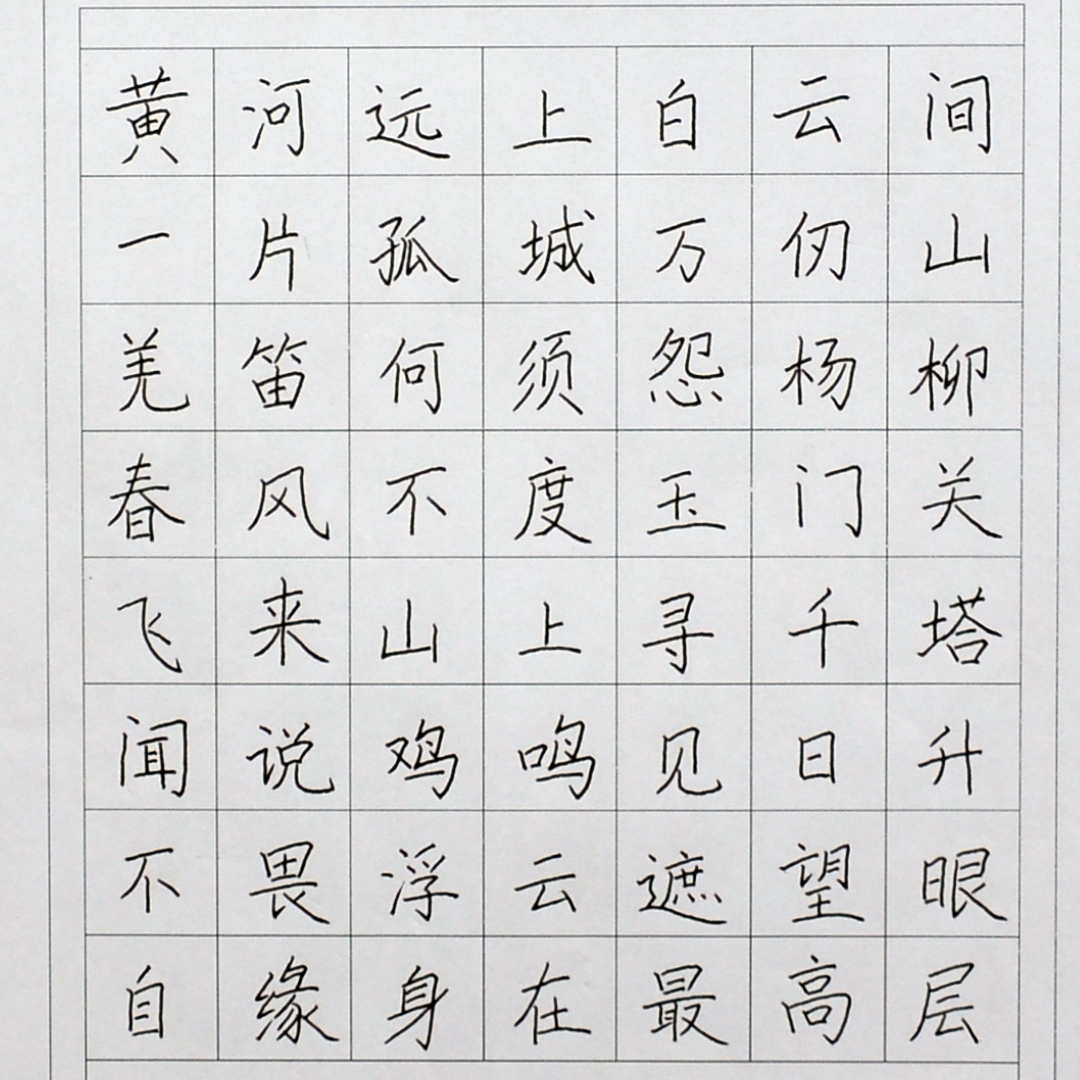 黄河远上白云间
一片孤城万仞山
羌笛何须怨杨柳
春风不度玉门关
飞来山上寻千塔
闻说鸡鸣见日升
不畏浮云遮望眼
自缘身在最高层